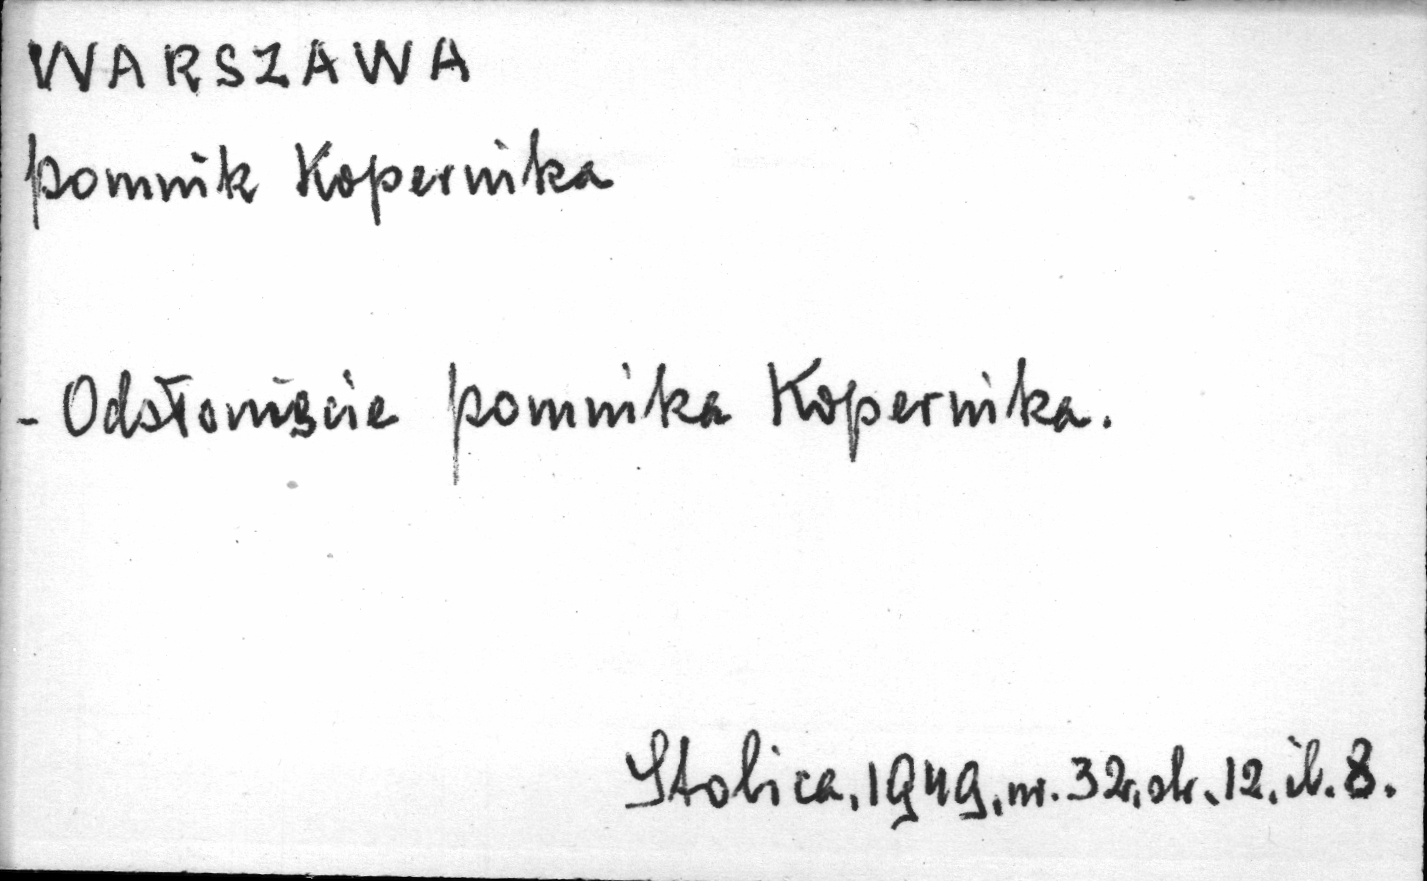 WARSZAWA
pomnik Kopernika
- Odsłonięcie pomnika Kopernika.
Stolica, 1949, nr. 32, str. 12, il. 8.